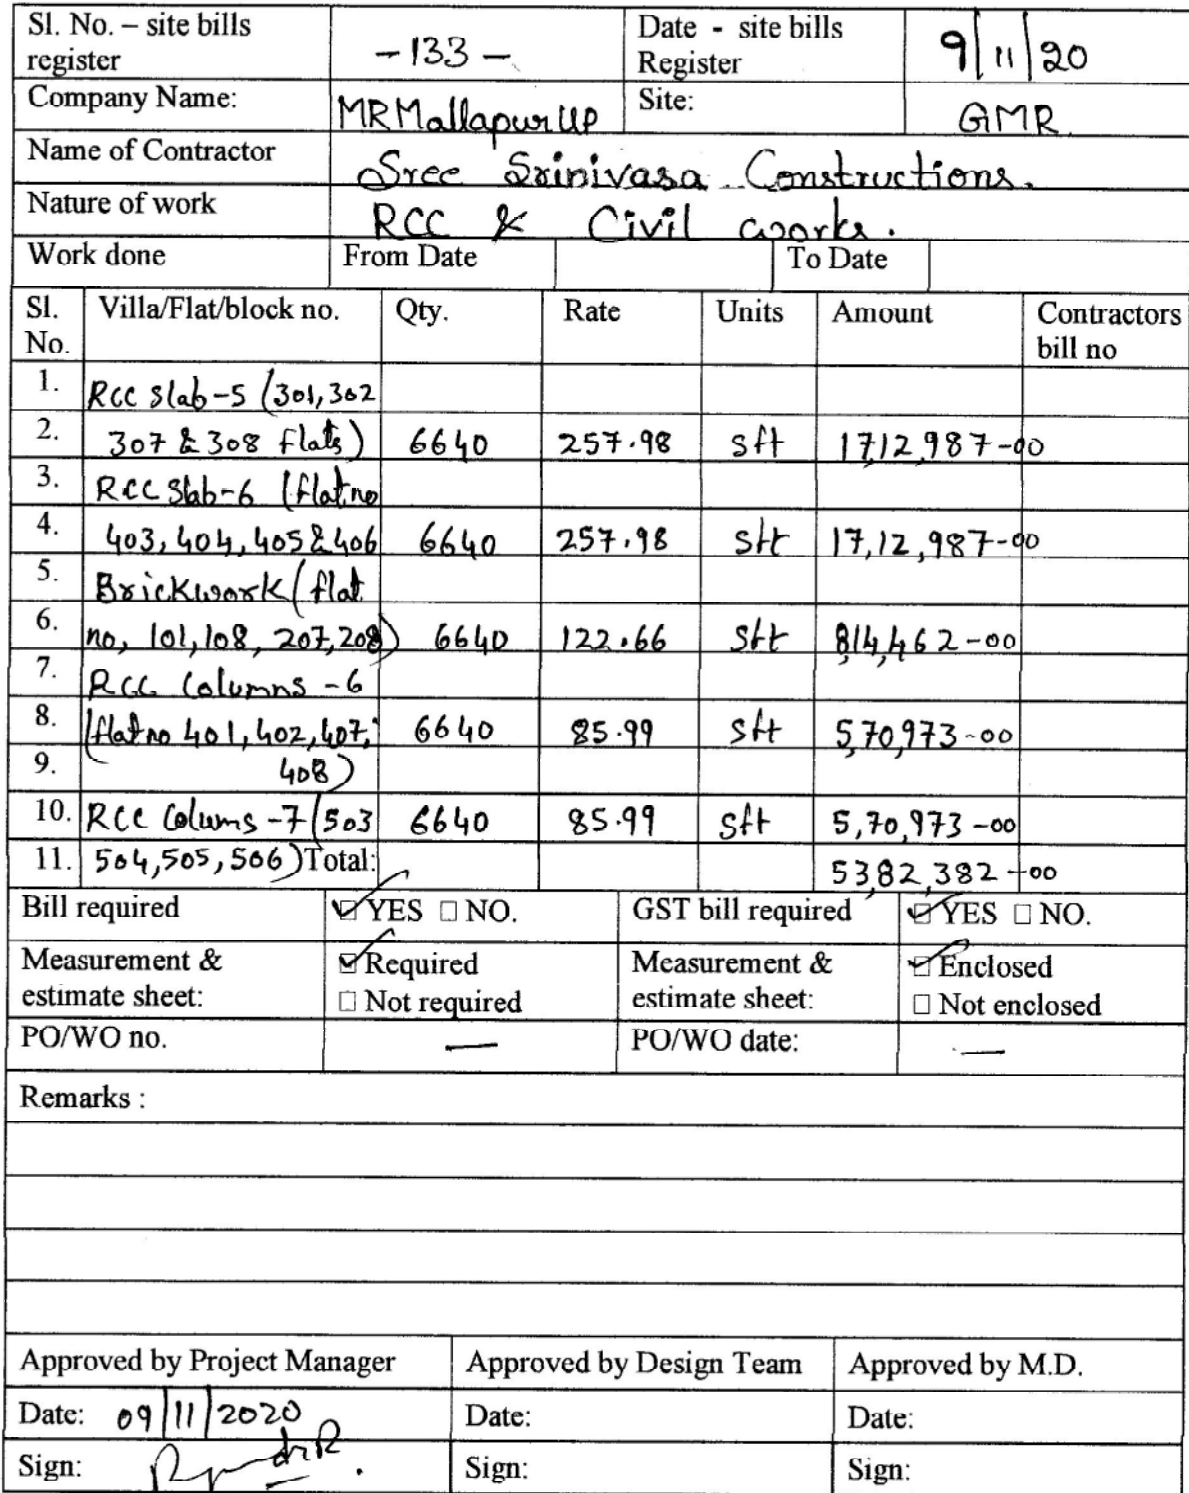 Sl. No. – site bills register -133- Date - site bills Register 9/11/20
Company Name: MRMallapurllp Site: GMR
Name of Contractor Sree Srinivasa Constructions.
Nature of work RCC & Civil works.
Work done From Date To Date
Sl. No. Villa/Flat/block no. Qty. Rate Units Amount Contractors bill no
1. RCC Slab-5 (301,302
2. 307 & 308 flats) 6640 257.98 sft 17,12,987-00
3. RCC Slab-6 (flat no
4. 403, 404, 405 & 406 6640 257.98 sft 17,12,987-00
5. Brickwork (flat
6. no, 101,108, 207,208) 6640 122.66 sft 8,14,462-00
7. RCC Columns -6
8. (flat no 401,402,407, 6640 85.99 sft 5,70,973-00
9. 408)
10. RCC Colums -7 (503 6640 85.99 sft 5,70,973-00
11. 504,505,506) Total: 53,82,382-00
Bill required ☑ YES ☐ NO. GST bill required ☑ YES ☐ NO.
Measurement & estimate sheet: ☑ Required ☐ Not required Measurement & estimate sheet: ☑ Enclosed ☐ Not enclosed
PO/WO no. — PO/WO date: —
Remarks :
Approved by Project Manager Approved by Design Team Approved by M.D.
Date: 09/11/2020 Date: Date:
Sign: Sign: Sign: